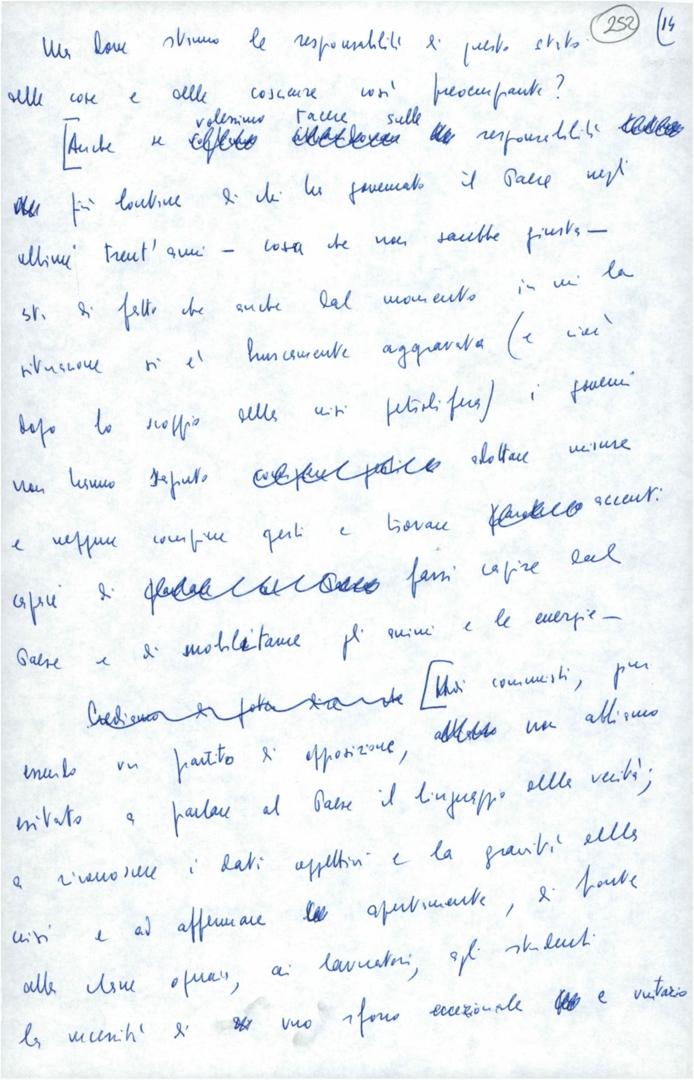 252 14
Ma dove stanno le responsabilità di questo stato
delle cose e delle coscienze così preoccupante?
volessimo tacere sulle
[Anche se responsabilità
più lontane di chi ha governato il Paese negli
ultimi trent'anni – cosa che non sarebbe giusta –
sta di fatto che anche dal momento in cui la
situazione si è bruscamente aggravata (e cioè
dopo lo scoppio della crisi petrolifera) i governi
non hanno saputo adottare misure
e neppure compiere gesti e trovare accenti
capaci di farsi capire dal
Paese e di mobilitarne gli animi e le energie –
Crediamo di poter dire che [Noi comunisti, pur
essendo un partito di opposizione, non abbiamo
esitato a parlare al Paese il linguaggio della verità;
a riconoscere i dati oggettivi e la gravità della
crisi e ad affermare apertamente, di fronte
alla classe operaia, ai lavoratori, agli studenti
la necessità di uno sforzo eccezionale e unitario